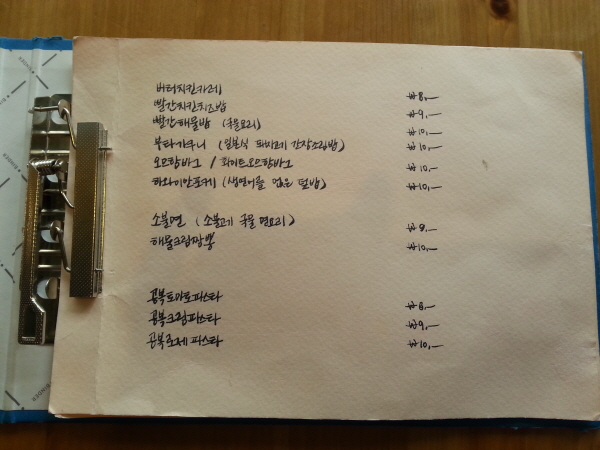 버터치킨카레 ₩8,—
빨간치킨치즈밥 ₩9,—
빨간해물밥 (국물요리) ₩10,—
부타가쿠니 (일본식 돼지고기 간장조림밥) ₩10,—
오므함바그 / 화이트오므함바그 ₩10,—
하와이안포케 (생연어를 얹은 덮밥) ₩10,—
소불면 (소불고기 국물 면요리) ₩8,—
해물크림짬뽕 ₩10,—
공복토마토파스타 ₩8,—
공복크림파스타 ₩9,—
공복로제파스타 ₩10,—